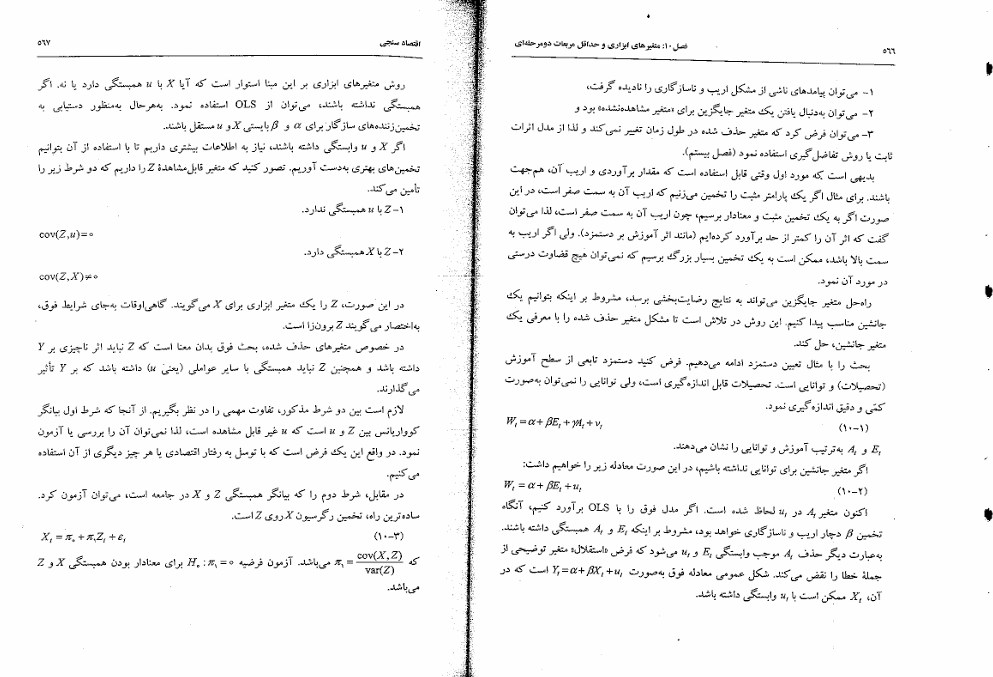 ۵۶۶
فصل ۱۰: متغیرهای ابزاری و حداقل مربعات دومرحله‌ای
۱- می‌توان پیامدهای ناشی از مشکل اریب و ناسازگاری را نادیده گرفت،
۲- می‌توان به‌دنبال یافتن یک متغیر جایگزین برای «متغیر مشاهده‌نشده» بود و
۳- می‌توان فرض کرد که متغیر حذف شده در طول زمان تغییر نمی‌کند و لذا از مدل اثرات
ثابت یا روش تفاضل‌گیری استفاده نمود (فصل بیستم).
بدیهی است که مورد اول وقتی قابل استفاده است که مقدار برآوردی و اریب آن، هم‌جهت
باشند. برای مثال اگر یک پارامتر مثبت را تخمین می‌زنیم که اریب آن به سمت صفر است، در این
صورت اگر به یک تخمین مثبت و معنادار برسیم، چون اریب آن به سمت صفر است، لذا می‌توان
گفت که اثر آن را کمتر از حد برآورد کرده‌ایم (مانند اثر آموزش بر دستمزد). ولی اگر اریب به
سمت بالا باشد، ممکن است به یک تخمین بسیار بزرگ برسیم که نمی‌توان هیچ قضاوت درستی
در مورد آن نمود.
راه‌حل متغیر جایگزین می‌تواند به نتایج رضایت‌بخشی برسد، مشروط بر اینکه بتوانیم یک
جانشین مناسب پیدا کنیم. این روش در تلاش است تا مشکل متغیر حذف شده را با معرفی یک
متغیر جانشین، حل کند.
بحث را با مثال تعیین دستمزد ادامه می‌دهیم. فرض کنید دستمزد تابعی از سطح آموزش
(تحصیلات) و توانایی است. تحصیلات قابل اندازه‌گیری است، ولی توانایی را نمی‌توان به‌صورت
کمّی و دقیق اندازه‌گیری نمود.
(۱۰-۱) Wₜ = α + βEₜ + γAₜ + vₜ
Eₜ و Aₜ به‌ترتیب آموزش و توانایی را نشان می‌دهند.
اگر متغیر جانشین برای توانایی نداشته باشیم، در این صورت معادله زیر را خواهیم داشت:
(۱۰-۲) Wₜ = α + βEₜ + uₜ
اکنون متغیر Aₜ در uₜ لحاظ شده است. اگر مدل فوق را با OLS برآورد کنیم، آنگاه
تخمین β دچار اریب و ناسازگاری خواهد بود، مشروط بر اینکه Eₜ و Aₜ همبستگی داشته باشند.
به‌عبارت دیگر حذف Aₜ موجب وابستگی Eₜ و uₜ می‌شود که فرض «استقلال» متغیر توضیحی از
جملهٔ خطا را نقض می‌کند. شکل عمومی معادله فوق به‌صورت Yₜ = α + βXₜ + uₜ است که در
آن، Xₜ ممکن است با uₜ وابستگی داشته باشد.
اقتصاد سنجی
۵۶۷
روش متغیرهای ابزاری بر این مبنا استوار است که آیا X با u همبستگی دارد یا نه. اگر
همبستگی نداشته باشند، می‌توان از OLS استفاده نمود. به‌هرحال به‌منظور دستیابی به
تخمین‌زننده‌های سازگار برای α و β بایستی X و u مستقل باشند.
اگر X و u وابستگی داشته باشند، نیاز به اطلاعات بیشتری داریم تا با استفاده از آن بتوانیم
تخمین‌های بهتری به‌دست آوریم. تصور کنید که متغیر قابل‌مشاهدهٔ Z را داریم که دو شرط زیر را
تأمین می‌کند.
۱- Z با u همبستگی ندارد.
cov(Z,u)=۰
۲- Z با X همبستگی دارد.
cov(Z,X)≠۰
در این صورت، Z را یک متغیر ابزاری برای X می‌گویند. گاهی‌اوقات به‌جای شرایط فوق،
به‌اختصار می‌گویند Z برون‌زا است.
در خصوص متغیرهای حذف شده، بحث فوق بدان معنا است که Z نباید اثر ناچیزی بر Y
داشته باشد و همچنین Z نباید همبستگی با سایر عواملی (یعنی u) داشته باشد که بر Y تأثیر
می‌گذارند.
لازم است بین دو شرط مذکور، تفاوت مهمی را در نظر بگیریم. از آنجا که شرط اول بیانگر
کوواریانس بین Z و u است که u غیر قابل مشاهده است، لذا نمی‌توان آن را بررسی یا آزمون
نمود. در واقع این یک فرض است که با توسل به رفتار اقتصادی یا هر چیز دیگری از آن استفاده
می‌کنیم.
در مقابل، شرط دوم را که بیانگر همبستگی Z و X در جامعه است، می‌توان آزمون کرد.
ساده‌ترین راه، تخمین رگرسیون X روی Z است.
(۱۰-۳) Xₜ = π۰ + π۱Zₜ + εₜ
که π۱ = cov(X,Z)/var(Z) می‌باشد. آزمون فرضیه H۰ : π۱ = ۰ برای معنادار بودن همبستگی X و Z
می‌باشد.